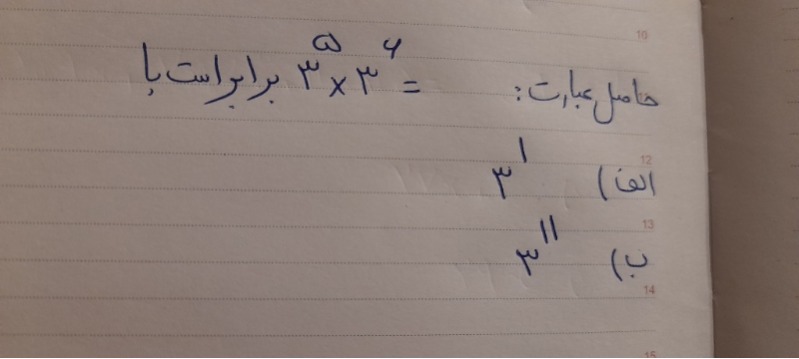 حاصل عبارت: = ۳^۵ × ۳^۶ برابر است با
10
12
الف) ۳^۱
13
ب) ۳^۱۱
14
15